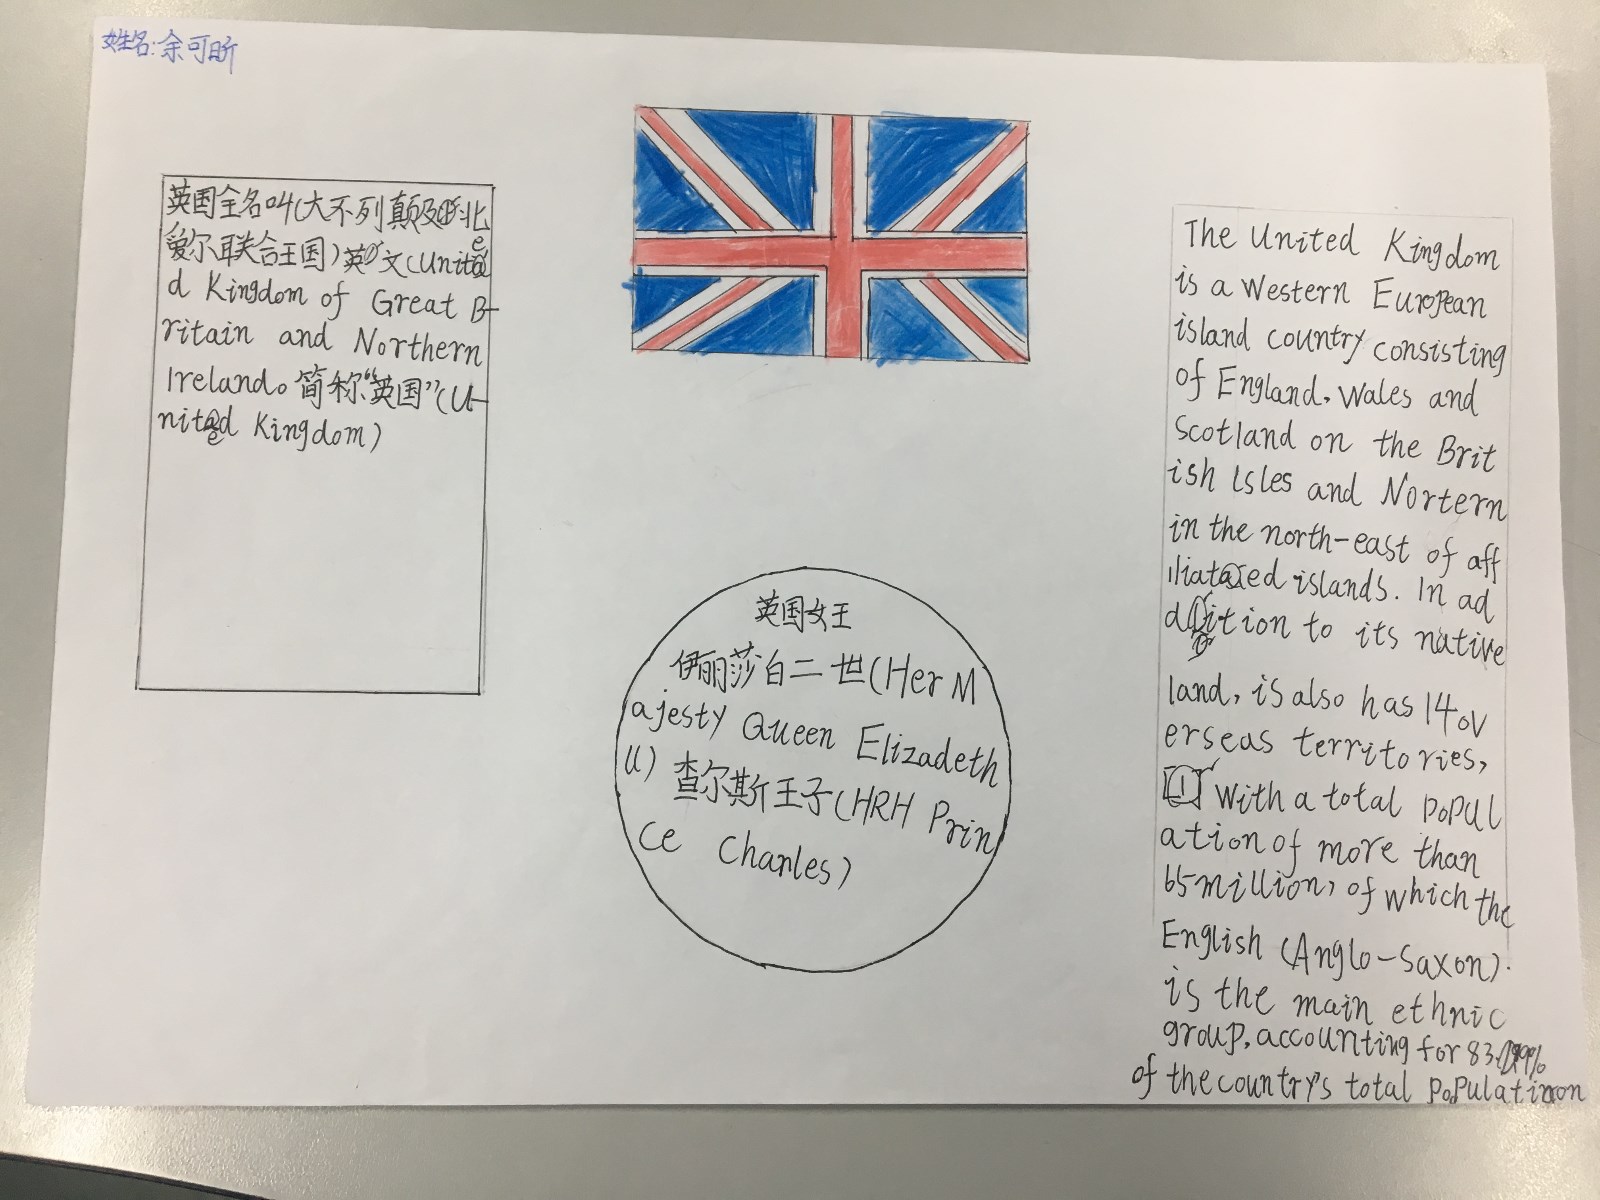 姓名:余可昕
英国全名叫(大不列颠及北
爱尔联合王国)英文(Unite
d Kingdom of Great B-
ritain and Northern
Ireland。简称“英国”(U-
nited Kingdom)
英国女王
伊丽莎白二世(Her M
ajesty Queen Elizadeth
II) 查尔斯王子(HRH Prin
ce Charles)
The United Kingdom
is a Western European
island country consisting
of England, Wales and
Scotland on the Brit
ish Isles and Nortern
in the north-east of aff
iliated islands. In ad
dition to its native
land, is also has 14 ov
erseas territories,
[1] With a total popul
ation of more than
65 million, of which the
English (Anglo-Saxon).
is the main ethnic
group, accounting for
of the country's total population